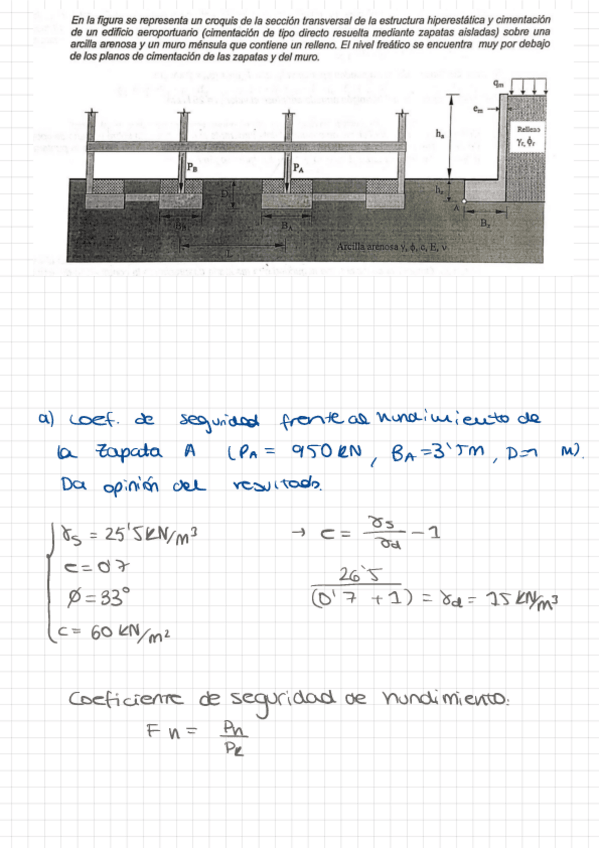 En la figura se representa un croquis de la sección transversal de la estructura hiperestática y cimentación
de un edificio aeroportuario (cimentación de tipo directo resuelta mediante zapatas aisladas) sobre una
arcilla arenosa y un muro ménsula que contiene un relleno. El nivel freático se encuentra muy por debajo
de los planos de cimentación de las zapatas y del muro.
qm
em
ha
Relleno
γr, ϕr
PB
PA
A
BA
L
Arcilla arenosa γ, ϕ, c, E, ν
a) Coef. de seguridad frente al hundimiento de
la zapata A (PA = 950 kN, BA = 3'5m, D=1 m).
Da opinión del resultado.
γs = 25'5 kN/m³
→ e = γs/γd - 1
e = 0'7
26'5/(0'7 + 1) = γd = 15 kN/m³
ϕ = 33°
c = 60 kN/m²
Coeficiente de seguridad de hundimiento:
Fn = Pn/Pe